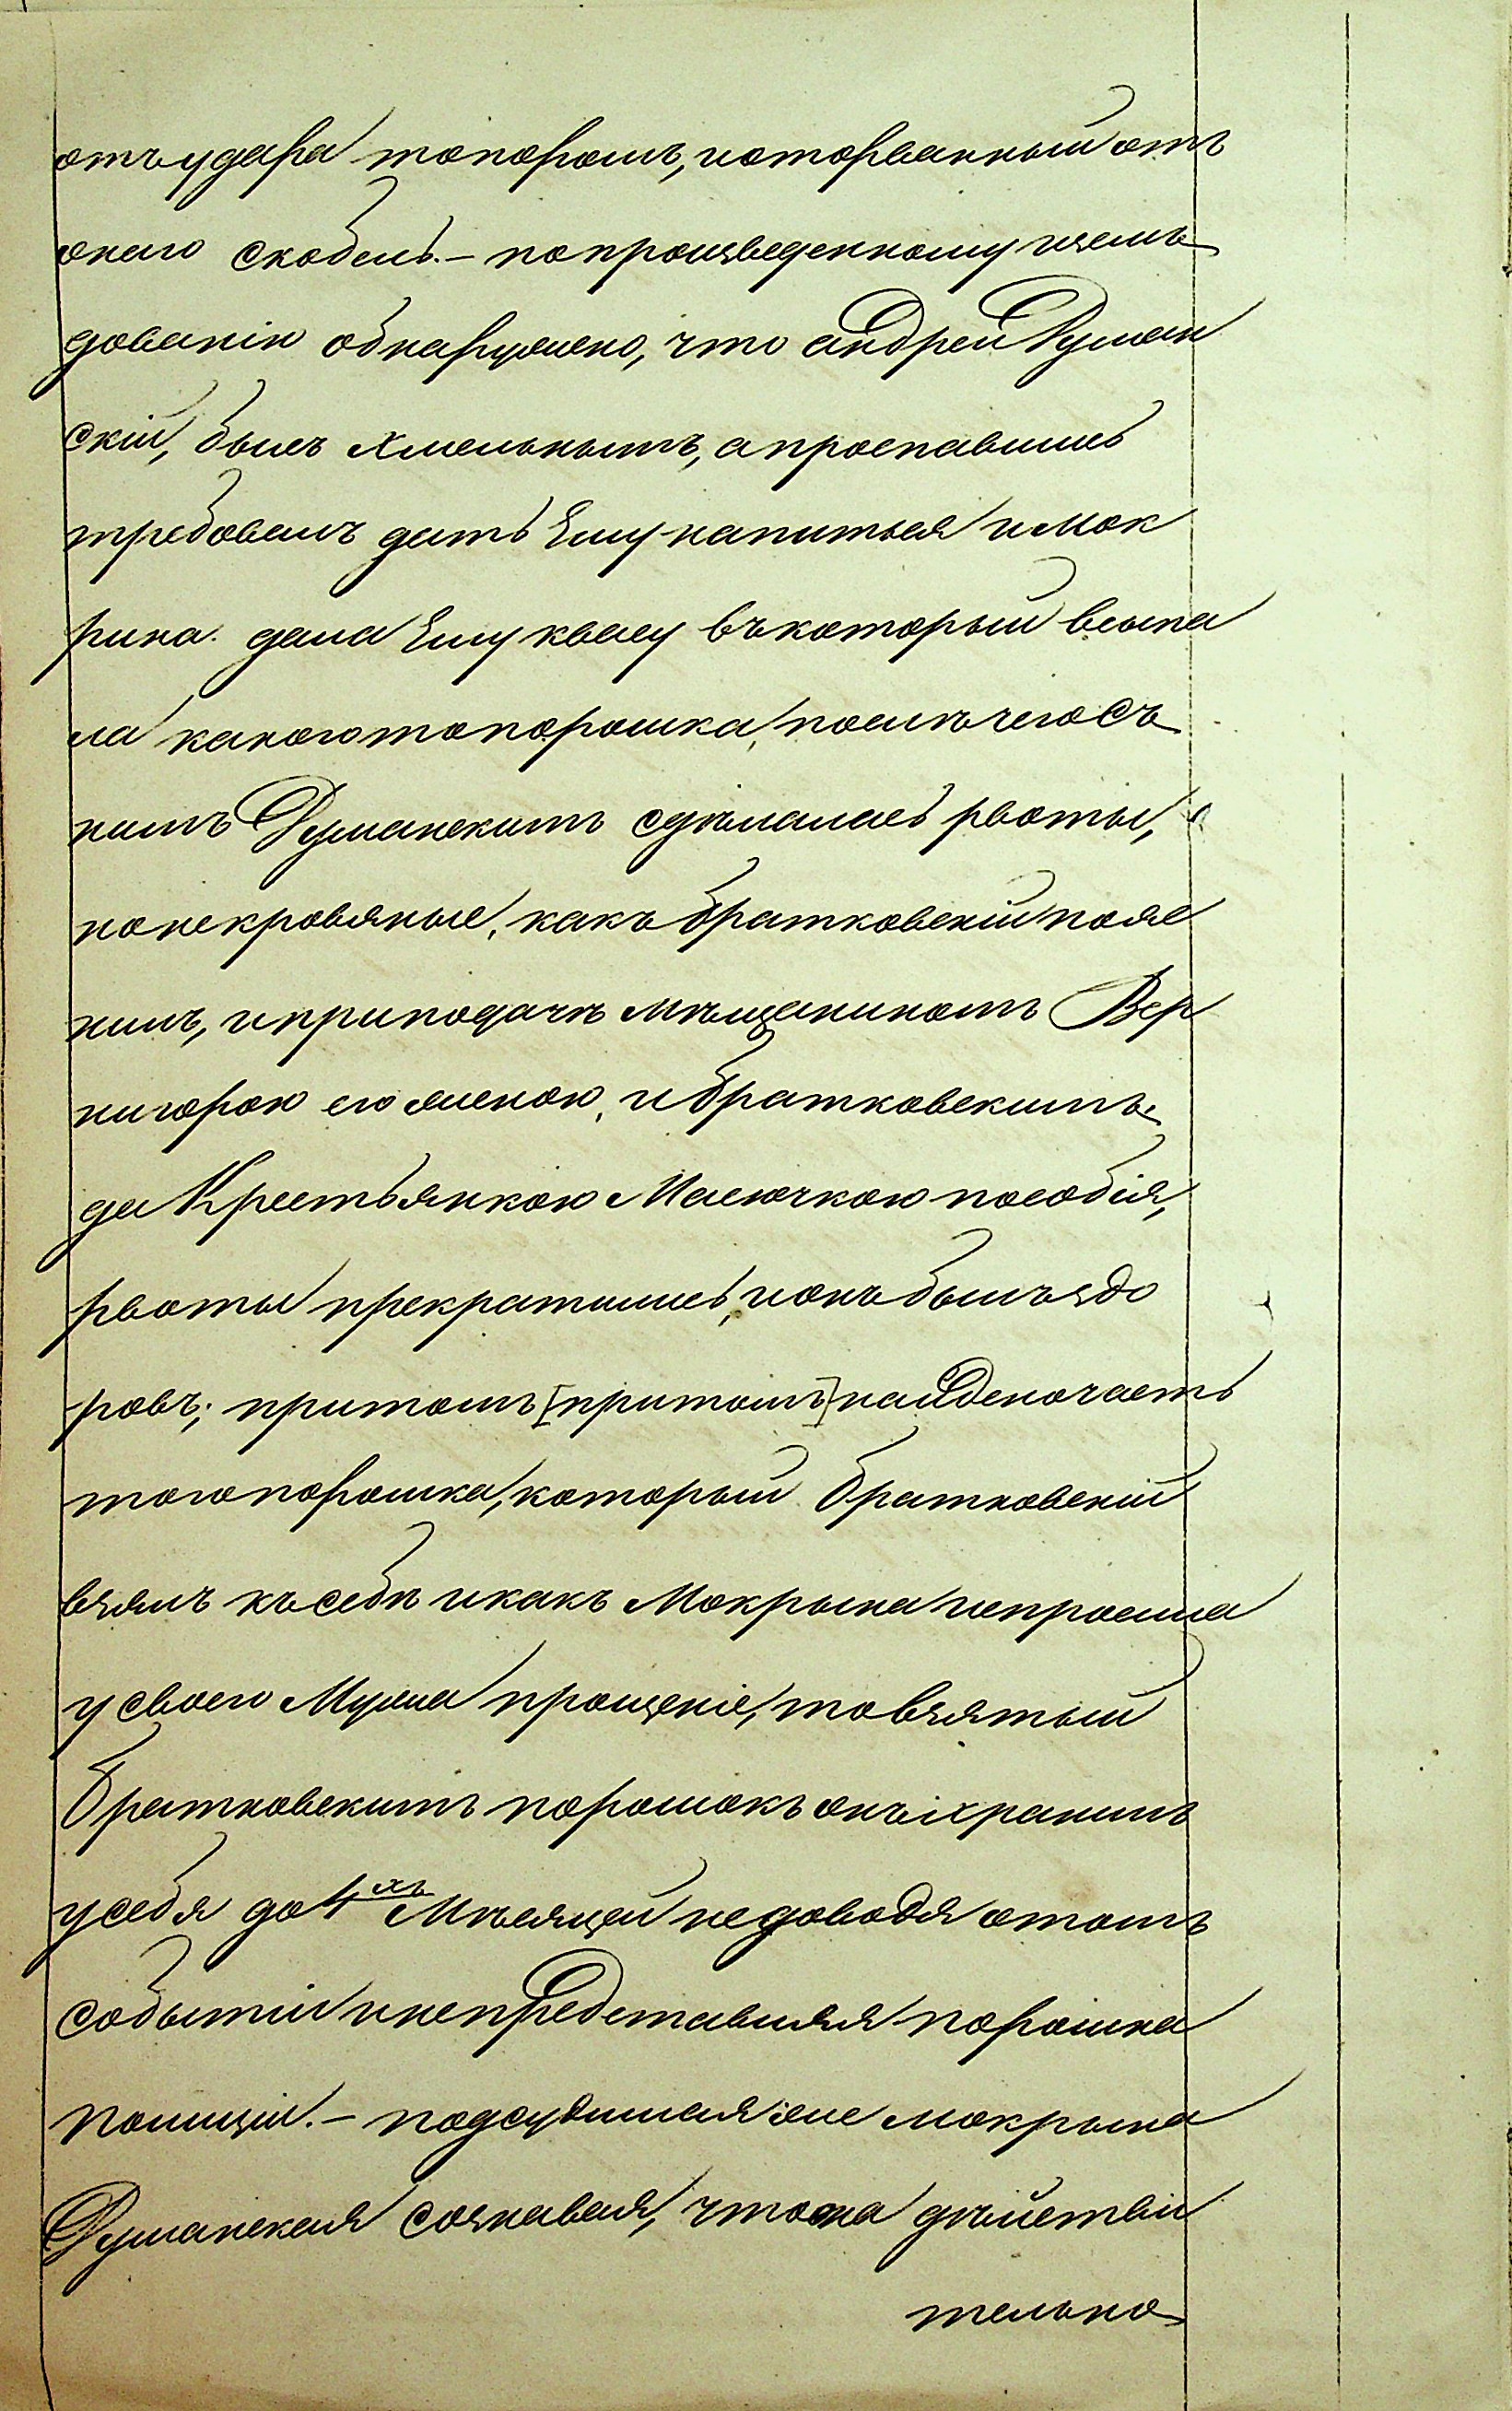 отъ удара топоромъ, и оторванный отъ
онаго скобель. – по произведенному изслѣ
дованію обнаружено, что андрей Думан
скій, былъ хмельнымъ, а проспавшись
требовалъ дать Ему напиться и мок
рина. дала Ему квасу въ который всыпа
ла какого то порошка, послѣ чего съ
нимъ Думанскимъ сдѣлалась рвоты,
но не кровяные, какъ братковскій пояс
нилъ, и при подачѣ мѣщаниномъ Вер
нигорою его женою, и братковскимъ
да Крестьянкою Масючкою пособія,
рвоты прекратились, и онъ былъ здо
ровъ; притомъ [притомъ] найдено часть
того порошка, который братковскій
взялъ къ себѣ и какъ Мокрына испросила
у своего Мужа прощеніе, то взятый
братковскимъ порошокъ онъ хранилъ
у себя до 4хъ Мѣсяцей не доводя о томъ
событіи и не представляя порошка
полиціи. – подсудимая же мокрына
Думанская сознавая, что она дѣйстви
тельно